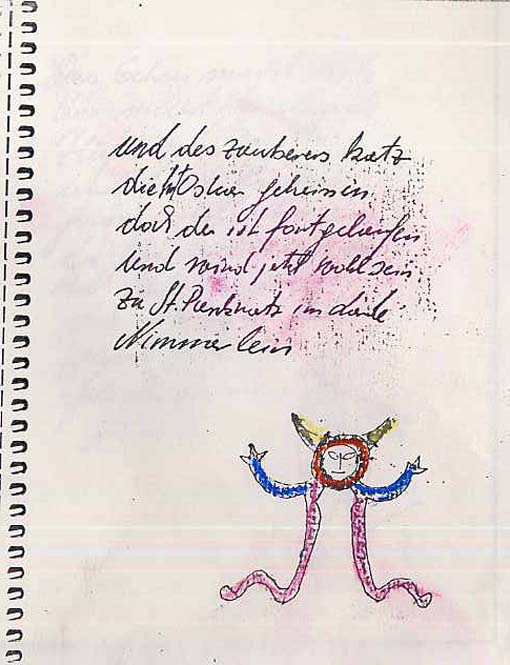 und des zauberers katz
die hat Oskar geheissen
doch der ist fortgelaufen
und wird jetzt wohl sein
zu St. Pankratz im
Nimmerlein